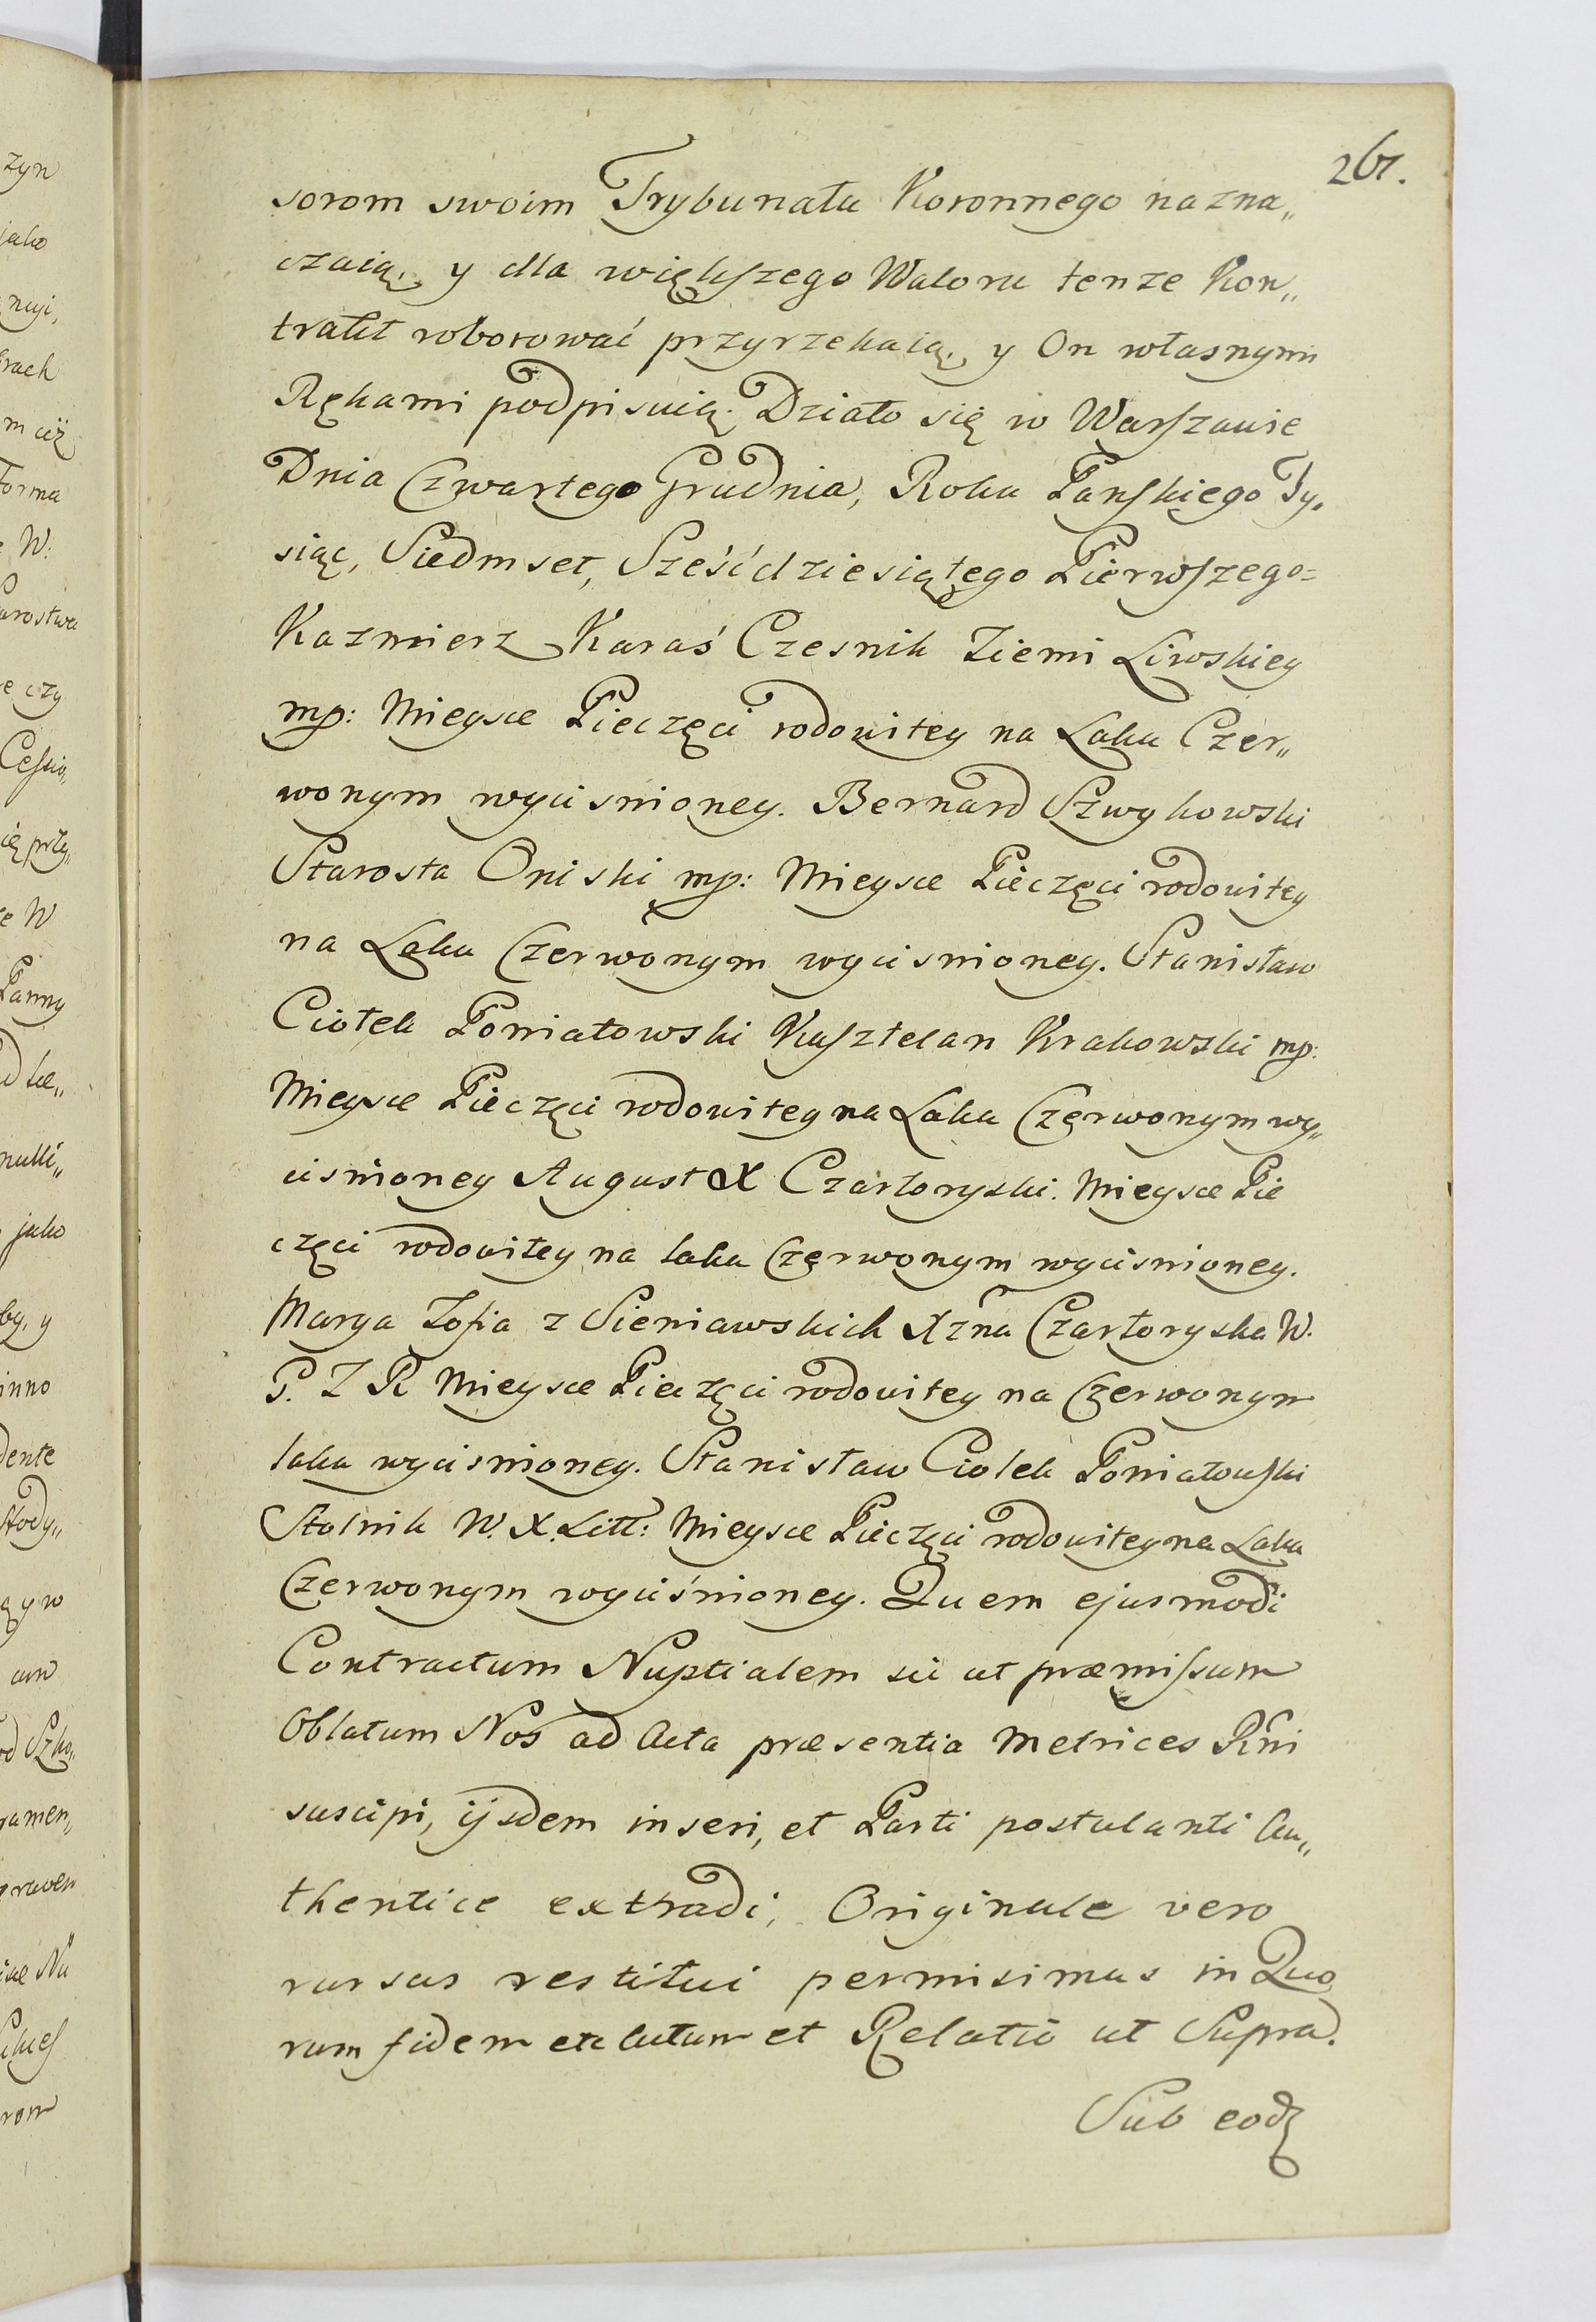 267.
sorom swoim Trybunału Koronnego nazna„
czaią, y dla więkſzego Waloru tenze Kon„
trakt roborować przyrzekaią, y On własnymi
Rękami podpisuią. Działo się w Warſzawie
Dnia Czwartego Grudnia, Roku Pańſkiego Ty„
siąc, Siedmset, Sześćdziesiątego Pierwſzego=
Kazmierz Karaś Czesnik Ziemi Liwskiey
mp: Mieysce Pieczęci rodowitey na Laku Czer„
wonym wyciśnioney. Bernard Szwykowski
Starosta Oniski mp: Mieysce Pieczęci rodowitey
na Laku Czerwonym wycisnioney. Stanisław
Ciołek Poniatowski Kaſztelan Krakowski mp:
Mieysce Pieczęci rodowitey na Laku Czerwonym wy„
cisnioney August X Czartoryski. Mieysce Pie
częci rodowitey na laku Czerwonym wycisnioney.
Marya Zofia z Sieniawskich Xżna Czartoryska W.
P. Z R Mieysce Pieczęci rodowitey na Czerwonym
laku wycisnioney. Stanisław Ciołek Poniatowſki
Stolnik W. X. Litt: Mieysce Pieczęci rodowitey na Laku
Czerwonym wyciśnioney. Quem ejusmodi
Contractum Nuptialem sic ut præmiſsum
Oblatum Nos ad Acta præsentia Metrices Rni
suscipi, ijsdem inseri, et Parti postulanti Au„
thentice extradi, Originale vero
rursus restitui permisimus in Quo
rum fidem etc Actum et Relatio ut Supra.
Sub eod
zyn
jako
nuji,
rach
m ciż
forma
W:
arostwa
e czy
Ceſsio„
ię przy„
e W
Panny
nulli„
jako
by, y
inno
dente
ą y w
od Szko„
ramen„
rom